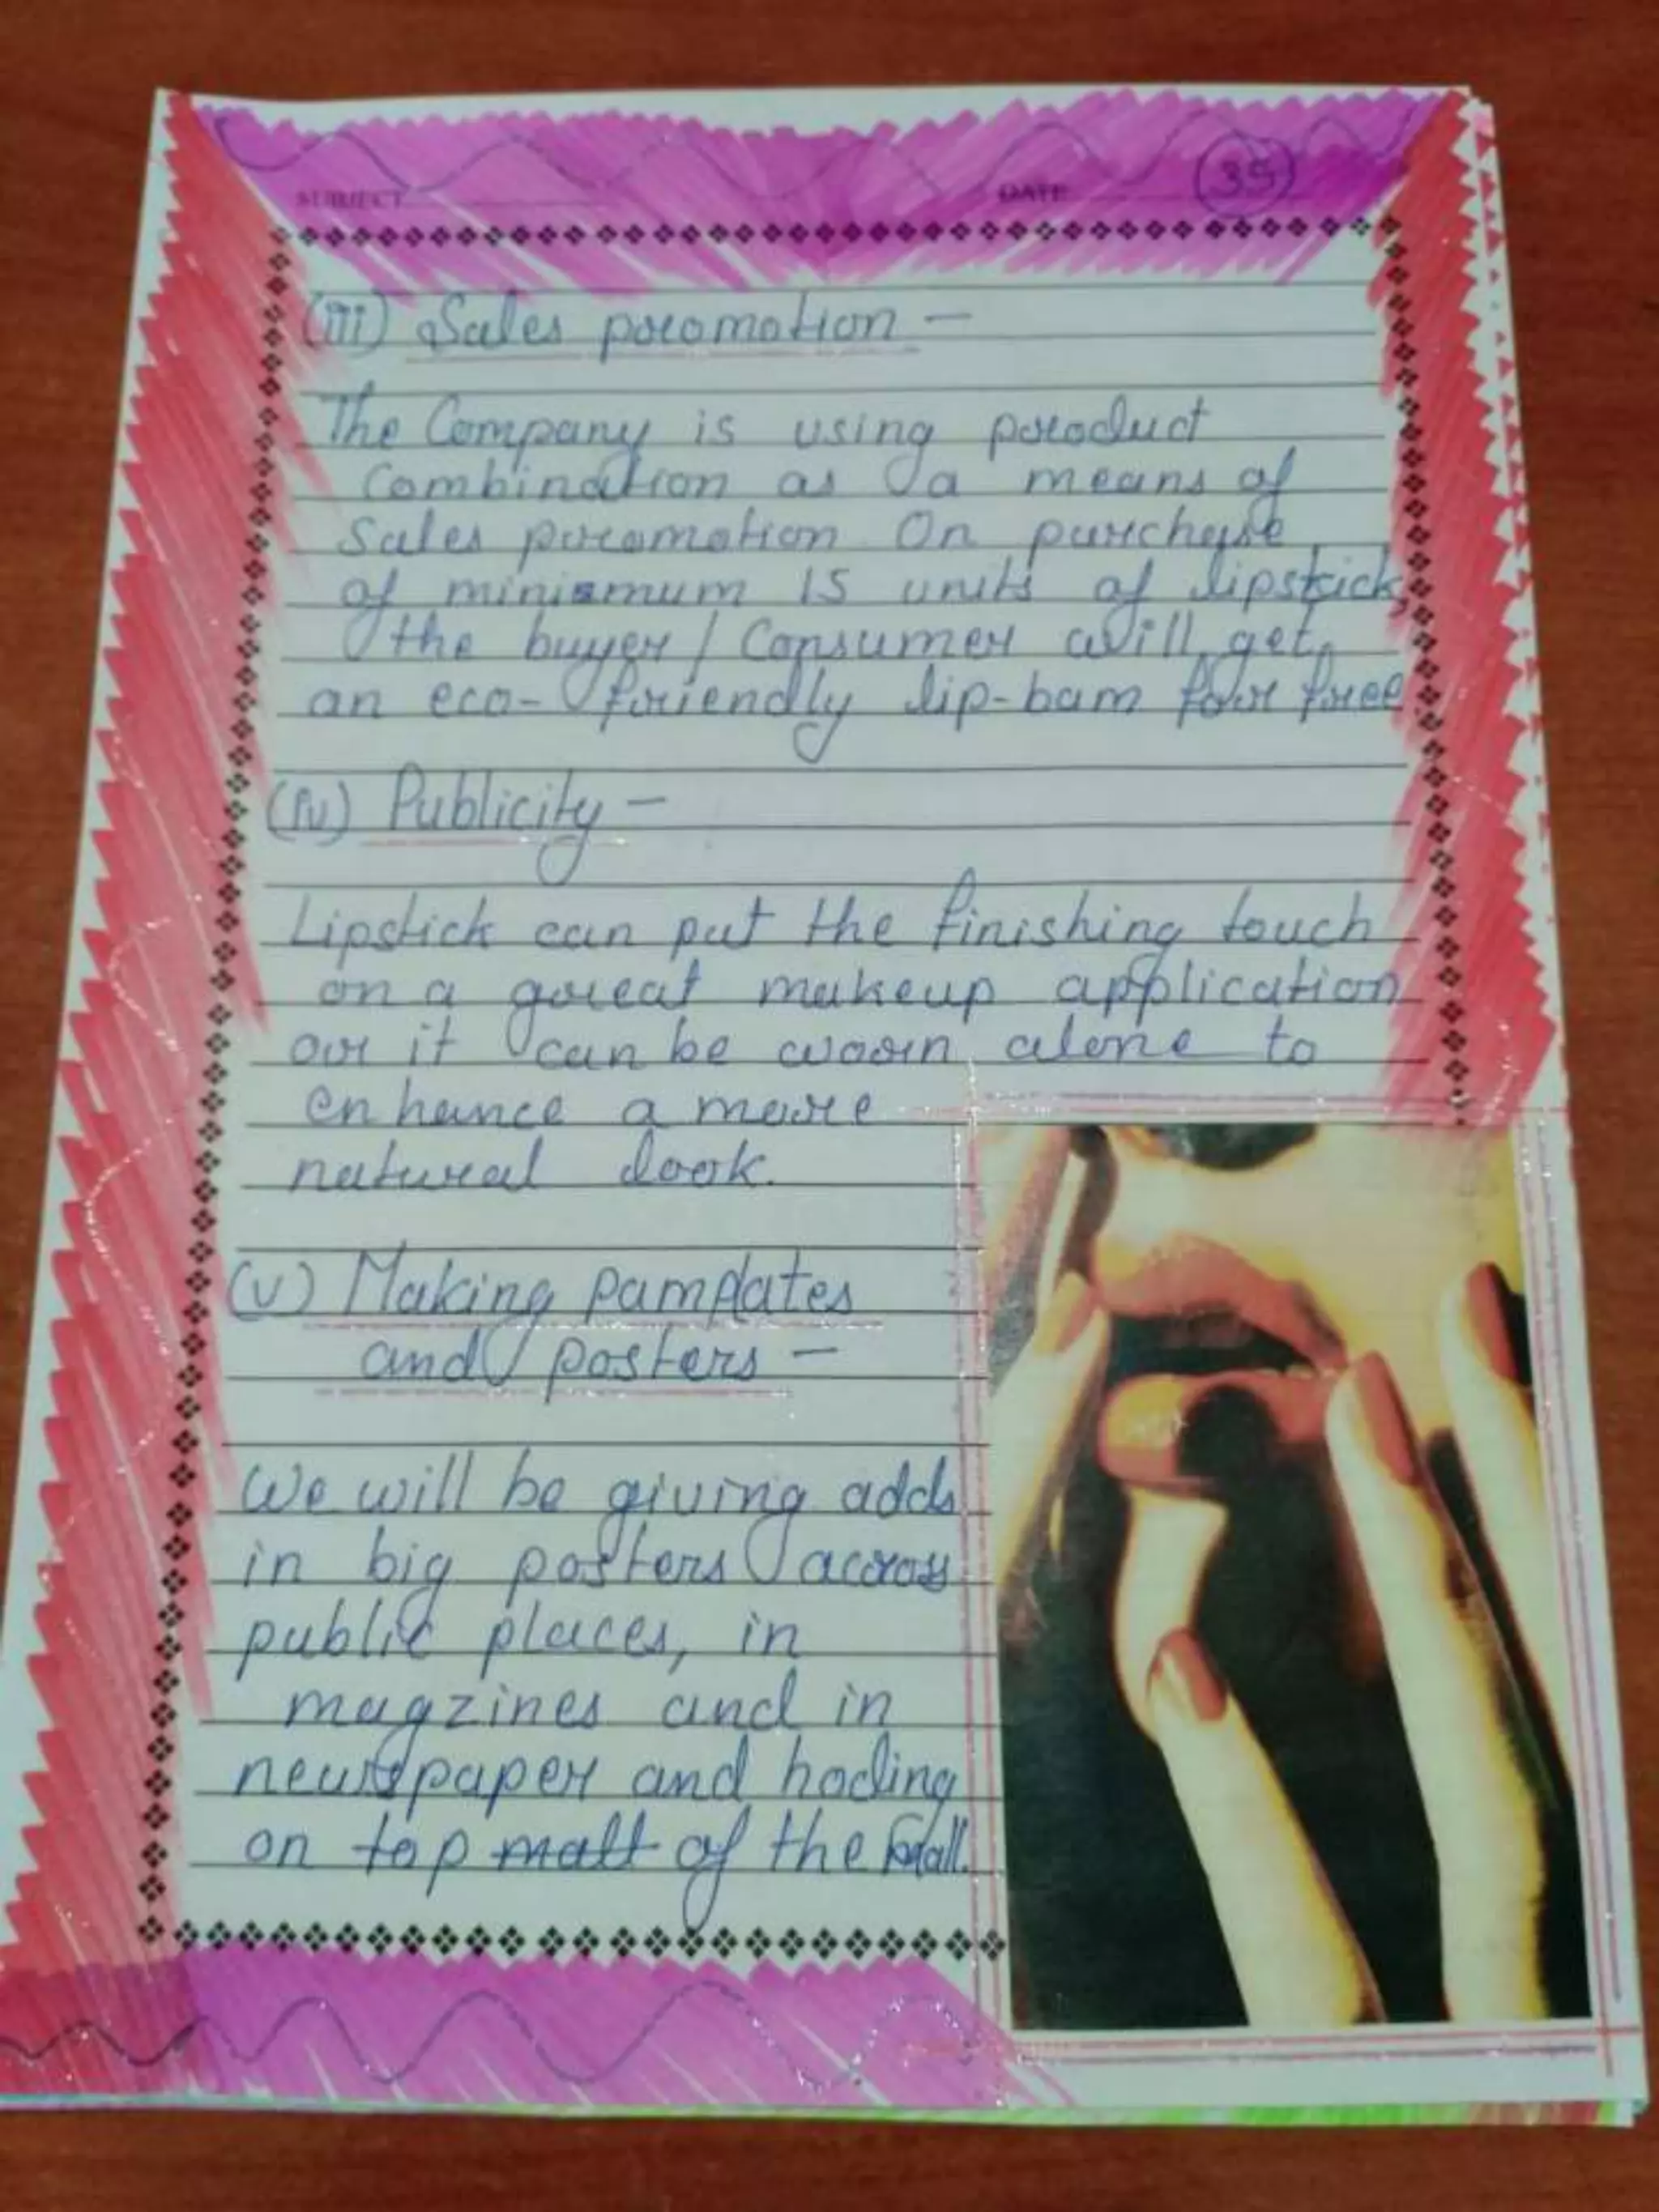 SUBJECT
DATE
35
(iii) Sales promotion -
The Company is using product
combination as a means of
sales promotion On purchase
of minimum 15 units of lipstick,
the buyer / Consumer will get
an eco- friendly lip-bam for free
(iv) Publicity -
Lipstick can put the finishing touch
on a great makeup application
or it can be worn alone to
enhance a more
natural look.
(v) Making pamplates
and posters -
We will be giving adds
in big posters across
public places, in
magzines and in
newspaper and hoding
on top matt of the mall.